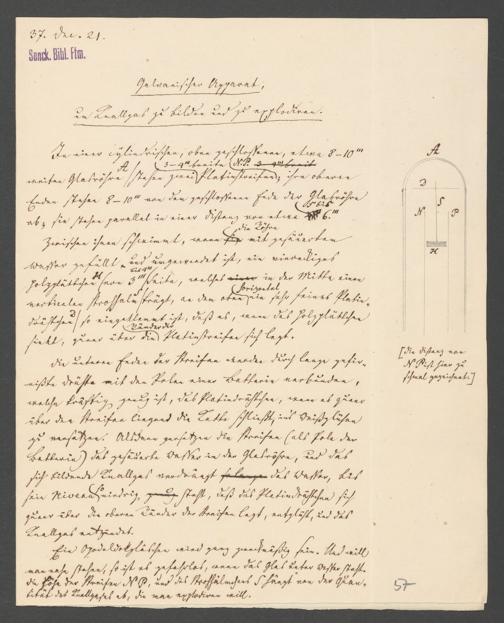 37. Dec. 21.
Senck. Bibl. Ffm.
Galvanischer Apparat,
um Knallgas zu bilden und zu explodiren.
In einer cylindrischen, oben geschlossenen, etwa 8–10'''
weiten Glasröhre A stehen zwei 3–4''' breite Platinstreifen, N.P. 3–4''' breit ihre oberen
Enden stehen 8–10''' von dem geschlossenen Ende der Glasröhre
ab; sie stehen parallel in einer Distanz von etwa 6.'''
Zwischen ihnen schwimmt, wenn die Röhre mit gesäuertem
Wasser gefüllt und umgewendet ist, ein viereckiges
Holzplättchen H von 3''' Seite, welches in der Mitte einen
verticalen Strohhalm trägt, an dem oben horizontal ein sehr feines Platin-
dräthchen so eingeklemmt ist, daß es, wenn das Holzplättchen
sinkt, quer über die Ränder der Platinstreifen sich legt.
Die unteren Enden der Streifen werden durch lange gefir-
nißte Dräthe mit den Polen einer Batterie verbunden,
welche kräftig genug ist, das Platindräthchen, wenn es quer
über den Streifen liegend die Kette schließt, ins Weißglühen
zu versetzen. Alsdann zersetzen die Streifen (als Pole der
Batterie) das gesäuerte Wasser in der Glasröhre, und das
sich bildende Knallgas verdrängt das Wasser, bis
sein Niveau niedrig steht, daß das Platindräthchen sich
quer über die oberen Ränder der Streifen legt, erglüht, und das
Knallgas entzündet.
Ein Opodeldokgläschen wird ganz zweckmäßig sein. Und will
man nahe stehen, so ist es gefahrlos, wenn das Glas unter Wasser steht.
Die Höhe der Streifen N P, und des Strohhälmchens S hängt von der Quan-
tität des Knallgases ab, die man explodiren will.
A
3
N
S
P
H
[die Distanz von
N P ist hier zu
schmal gezeichnet.]
57